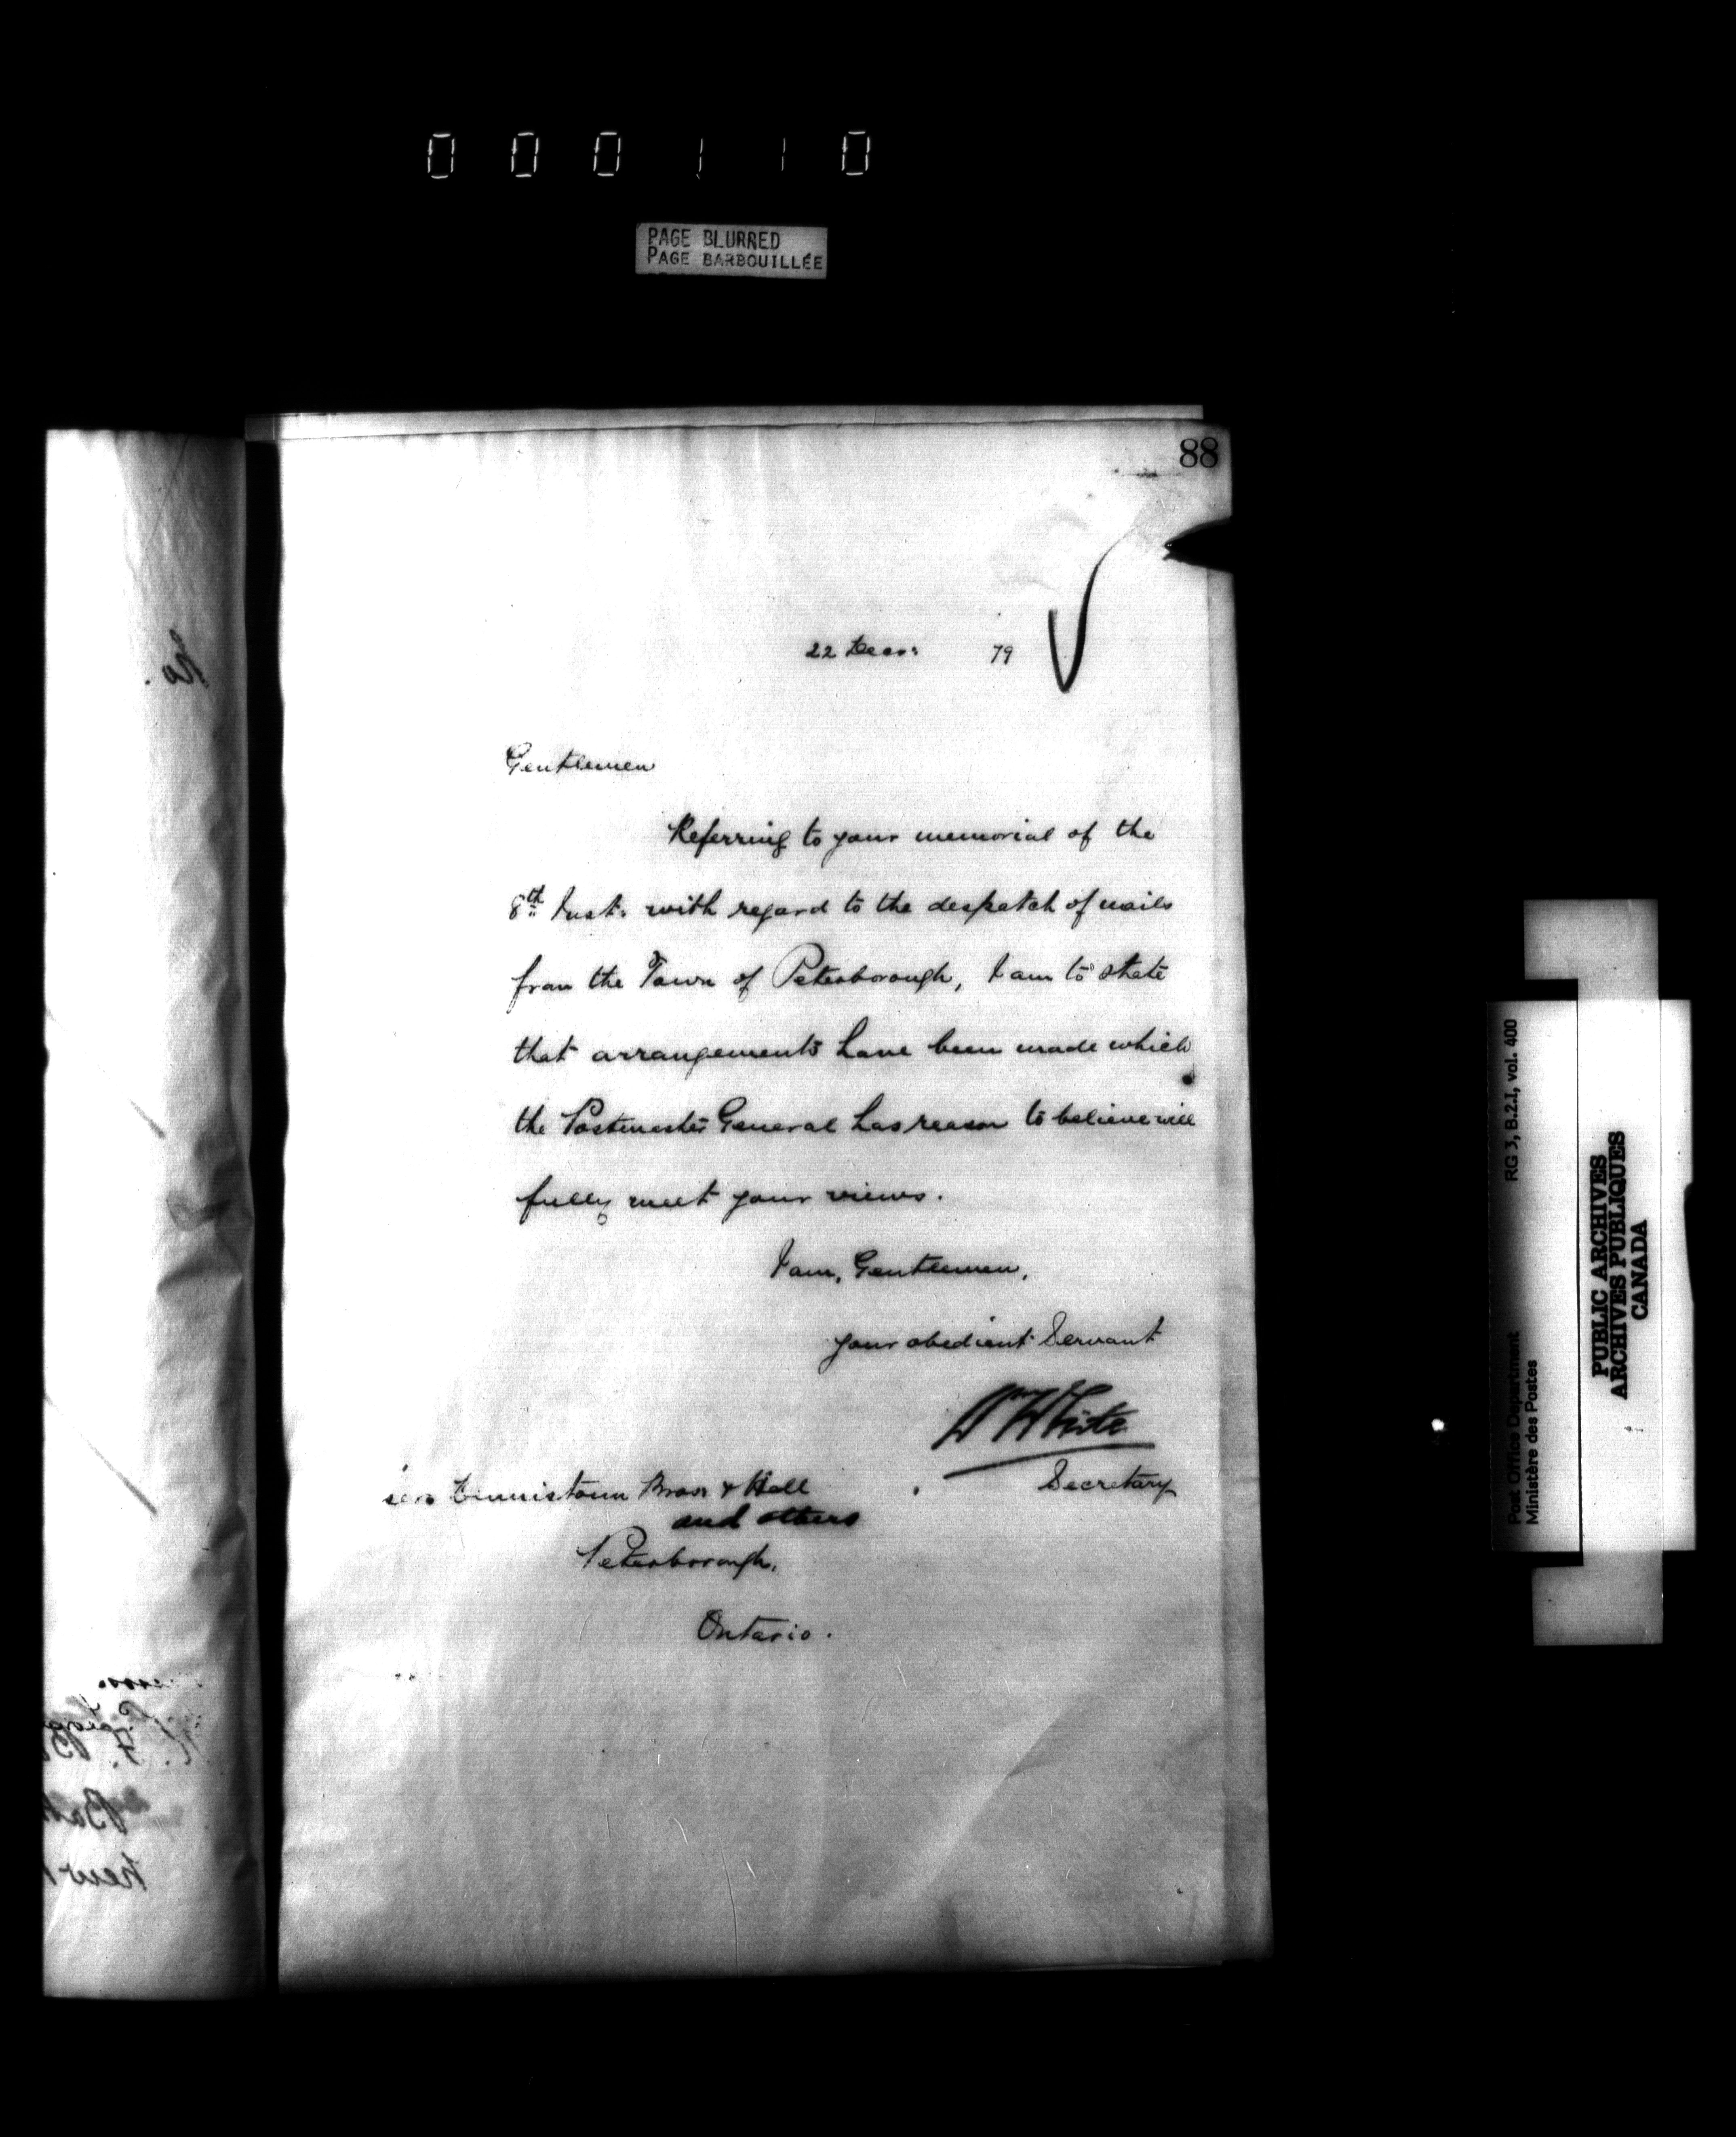 000110
PAGE BLURRED
PAGE BARBOUILLÉE
88
22 Decr: 79
Gentlemen
Referring to your memorial of the
8th Inst: with regard to the despatch of mails
from the Town of Peterborough, I am to state
that arrangements have been made which
the Postmaster General has reason to believe will
fully meet your views.
I am, Gentlemen,
your obedient Servant
Wm White
Secretary
Dennistoun Bros & Hall
and others
Peterborough,
Ontario.
Post Office Department RG 3, B.2.I, vol. 400
Ministère des Postes
PUBLIC ARCHIVES
ARCHIVES PUBLIQUES
CANADA